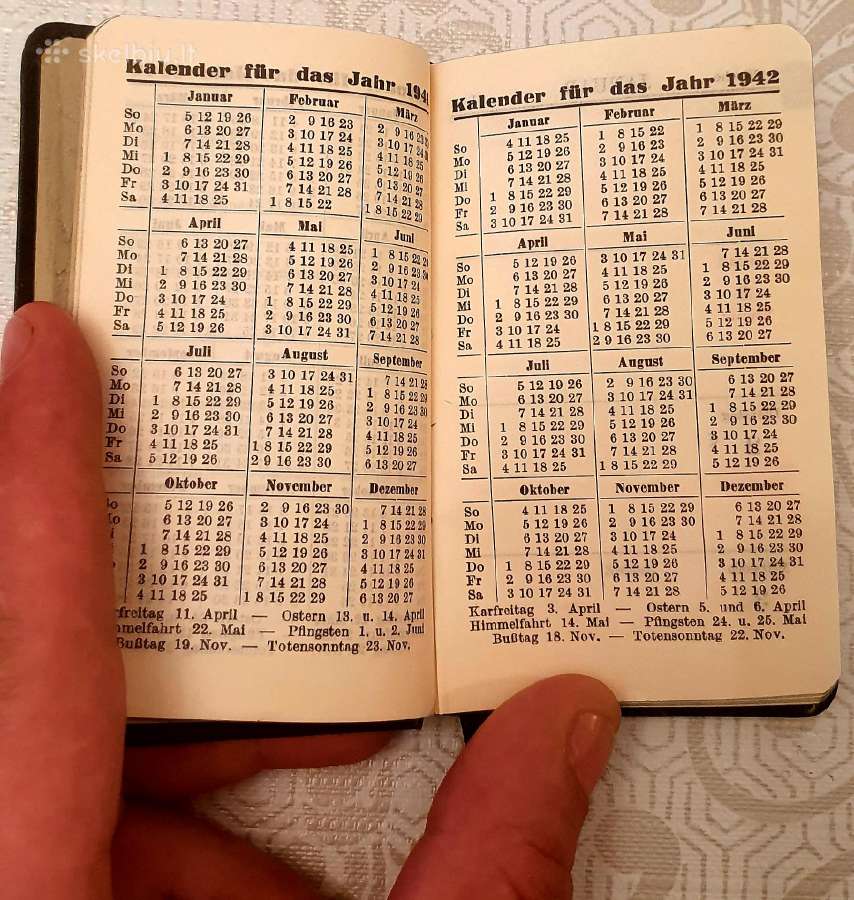 skelbiu.lt
Kalender für das Jahr 194
Januar Februar März
So 5 12 19 26 2 9 16 23 2 9 16 23 30
Mo 6 13 20 27 3 10 17 24 3 10 17 24 31
Di 7 14 21 28 4 11 18 25 4 11 18 25
Mi 1 8 15 22 29 5 12 19 26 5 12 19 26
Do 2 9 16 23 30 6 13 20 27 6 13 20 27
Fr 3 10 17 24 31 7 14 21 28 7 14 21 28
Sa 4 11 18 25 1 8 15 22 1 8 15 22 29
April Mai Juni
So 6 13 20 27 4 11 18 25 1 8 15 22 29
Mo 7 14 21 28 5 12 19 26 2 9 16 23 30
Di 1 8 15 22 29 6 13 20 27 3 10 17 24
Mi 2 9 16 23 30 7 14 21 28 4 11 18 25
Do 3 10 17 24 1 8 15 22 29 5 12 19 26
Fr 4 11 18 25 2 9 16 23 30 6 13 20 27
Sa 5 12 19 26 3 10 17 24 31 7 14 21 28
Juli August September
So 6 13 20 27 3 10 17 24 31 7 14 21 28
Mo 7 14 21 28 4 11 18 25 1 8 15 22 29
Di 1 8 15 22 29 5 12 19 26 2 9 16 23 30
Mi 2 9 16 23 30 6 13 20 27 3 10 17 24
Do 3 10 17 24 31 7 14 21 28 4 11 18 25
Fr 4 11 18 25 1 8 15 22 29 5 12 19 26
Sa 5 12 19 26 2 9 16 23 30 6 13 20 27
Oktober November Dezember
So 5 12 19 26 2 9 16 23 30 7 14 21 28
Mo 6 13 20 27 3 10 17 24 1 8 15 22 29
7 14 21 28 4 11 18 25 2 9 16 23 30
1 8 15 22 29 5 12 19 26 3 10 17 24 31
2 9 16 23 30 6 13 20 27 4 11 18 25
3 10 17 24 31 7 14 21 28 5 12 19 26
4 11 18 25 1 8 15 22 29 6 13 20 27
rfreitag 11. April — Ostern 13. u. 14. April
mmelfahrt 22. Mai — Pfingsten 1. u. 2. Juni
Bußtag 19. Nov. — Totensonntag 23. Nov.
Kalender für das Jahr 1942
Januar Februar März
So 4 11 18 25 1 8 15 22 1 8 15 22 29
Mo 5 12 19 26 2 9 16 23 2 9 16 23 30
Di 6 13 20 27 3 10 17 24 3 10 17 24 31
Mi 7 14 21 28 4 11 18 25 4 11 18 25
Do 1 8 15 22 29 5 12 19 26 5 12 19 26
Fr 2 9 16 23 30 6 13 20 27 6 13 20 27
Sa 3 10 17 24 31 7 14 21 28 7 14 21 28
April Mai Juni
So 5 12 19 26 3 10 17 24 31 7 14 21 28
Mo 6 13 20 27 4 11 18 25 1 8 15 22 29
Di 7 14 21 28 5 12 19 26 2 9 16 23 30
Mi 1 8 15 22 29 6 13 20 27 3 10 17 24
Do 2 9 16 23 30 7 14 21 28 4 11 18 25
Fr 3 10 17 24 1 8 15 22 29 5 12 19 26
Sa 4 11 18 25 2 9 16 23 30 6 13 20 27
Juli August September
So 5 12 19 26 2 9 16 23 30 6 13 20 27
Mo 6 13 20 27 3 10 17 24 31 7 14 21 28
Di 7 14 21 28 4 11 18 25 1 8 15 22 29
Mi 1 8 15 22 29 5 12 19 26 2 9 16 23 30
Do 2 9 16 23 30 6 13 20 27 3 10 17 24
Fr 3 10 17 24 31 7 14 21 28 4 11 18 25
Sa 4 11 18 25 1 8 15 22 29 5 12 19 26
Oktober November Dezember
So 4 11 18 25 1 8 15 22 29 6 13 20 27
Mo 5 12 19 26 2 9 16 23 30 7 14 21 28
Di 6 13 20 27 3 10 17 24 1 8 15 22 29
Mi 7 14 21 28 4 11 18 25 2 9 16 23 30
Do 1 8 15 22 29 5 12 19 26 3 10 17 24 31
Fr 2 9 16 23 30 6 13 20 27 4 11 18 25
Sa 3 10 17 24 31 7 14 21 28 5 12 19 26
Karfreitag 3. April — Ostern 5. und 6. April
Himmelfahrt 14. Mai — Pfingsten 24. u. 25. Mai
Bußtag 18. Nov. — Totensonntag 22. Nov.